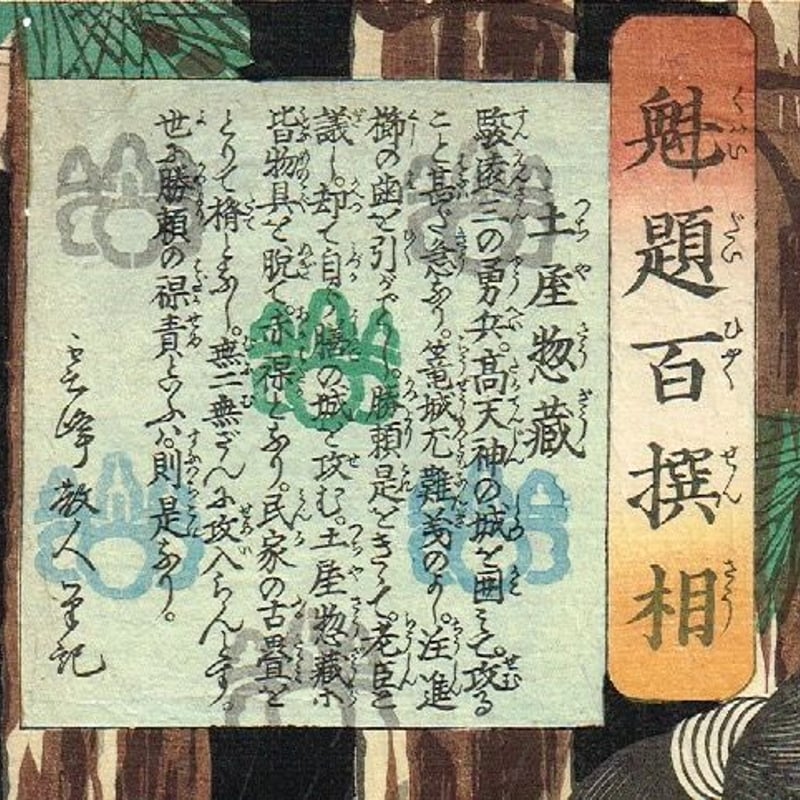 魁題百撰相
土屋惣藏
駿遠三の勇兵。高天神の城を囲こて。攻る
こと甚だ急なり。篭城尤難義のよし。注進
櫛の歯を引がごとし。勝頼是をきゝて。老臣と
議し。却て自ら膳の城を攻む。土屋惣藏等
皆物具を脱て。赤裸となり。民家の古畳を
とりて楯となし。無二無ざんに攻入らんとす。
世に勝頼の裸責といふハ則是なり。
散人筆記